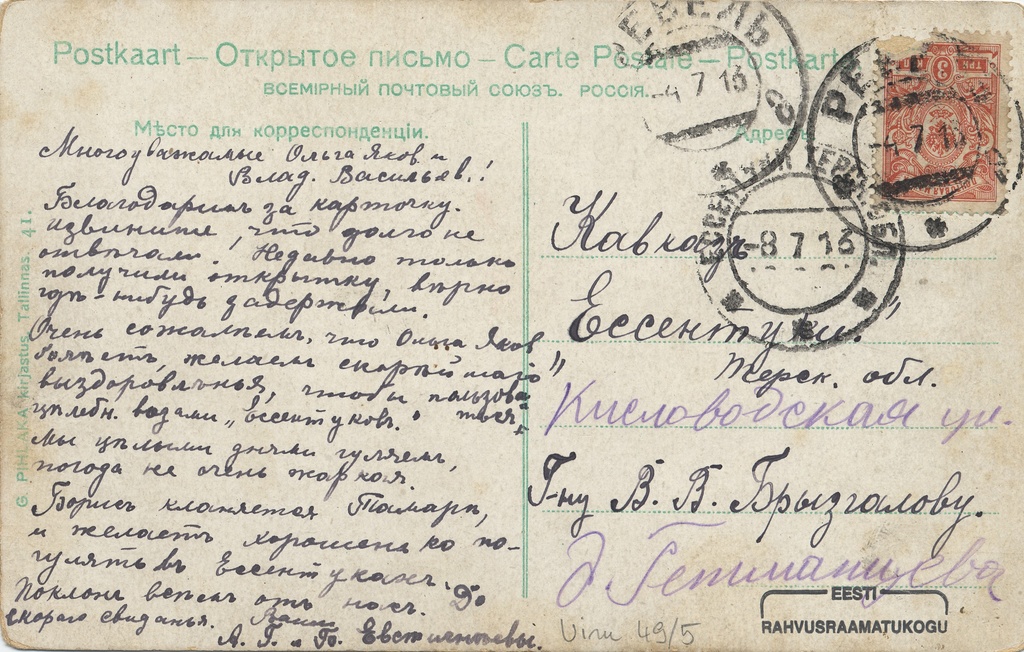 Postkaart — Открытое письмо — Carte Postale — Postkarte
ВСЕМІРНЫЙ ПОЧТОВЫЙ СОЮЗЪ. РОССІЯ.
Мѣсто для корреспонденціи.
Адресъ
Многоуважаемые Ольга Яков. и
Влад. Васильев.!
Благодаримъ за карточку.
извините, что долго не
отвѣчали. Недавно только
получили открытку, вѣрно
гдѣ-нибудь задержали.
Очень сожалѣемъ, что Ольга Яков
болѣетъ, желаемъ скорѣйшаго
выздоровленья, чтобы пользова-
цѣлебн. водами „Ессентуковъ." ться
Мы цѣлыми днями гуляемъ,
погода не очень жаркая.
Борисъ кланяется Тамарѣ,
и желаетъ хорошенько по-
гулять въ Ессентукахъ.
Поклонъ всѣмъ отъ насъ. До
скораго свиданья. Ваши
А. Г. и Б. Евстигнѣевы.
Кавказъ
„Ессентуки."
Терск. обл.
Кисловодская ул.
Г-ну В. В. Брызгалову.
д. Гетманцева
РЕВЕЛЬ
-4 7 16
РЕВЕЛЬ
-4 7 16
-8 7 16
3
G. PIHLAKA kirjastus, Tallinnas. 41.
Viru 49/5
EESTI
RAHVUSRAAMATUKOGU